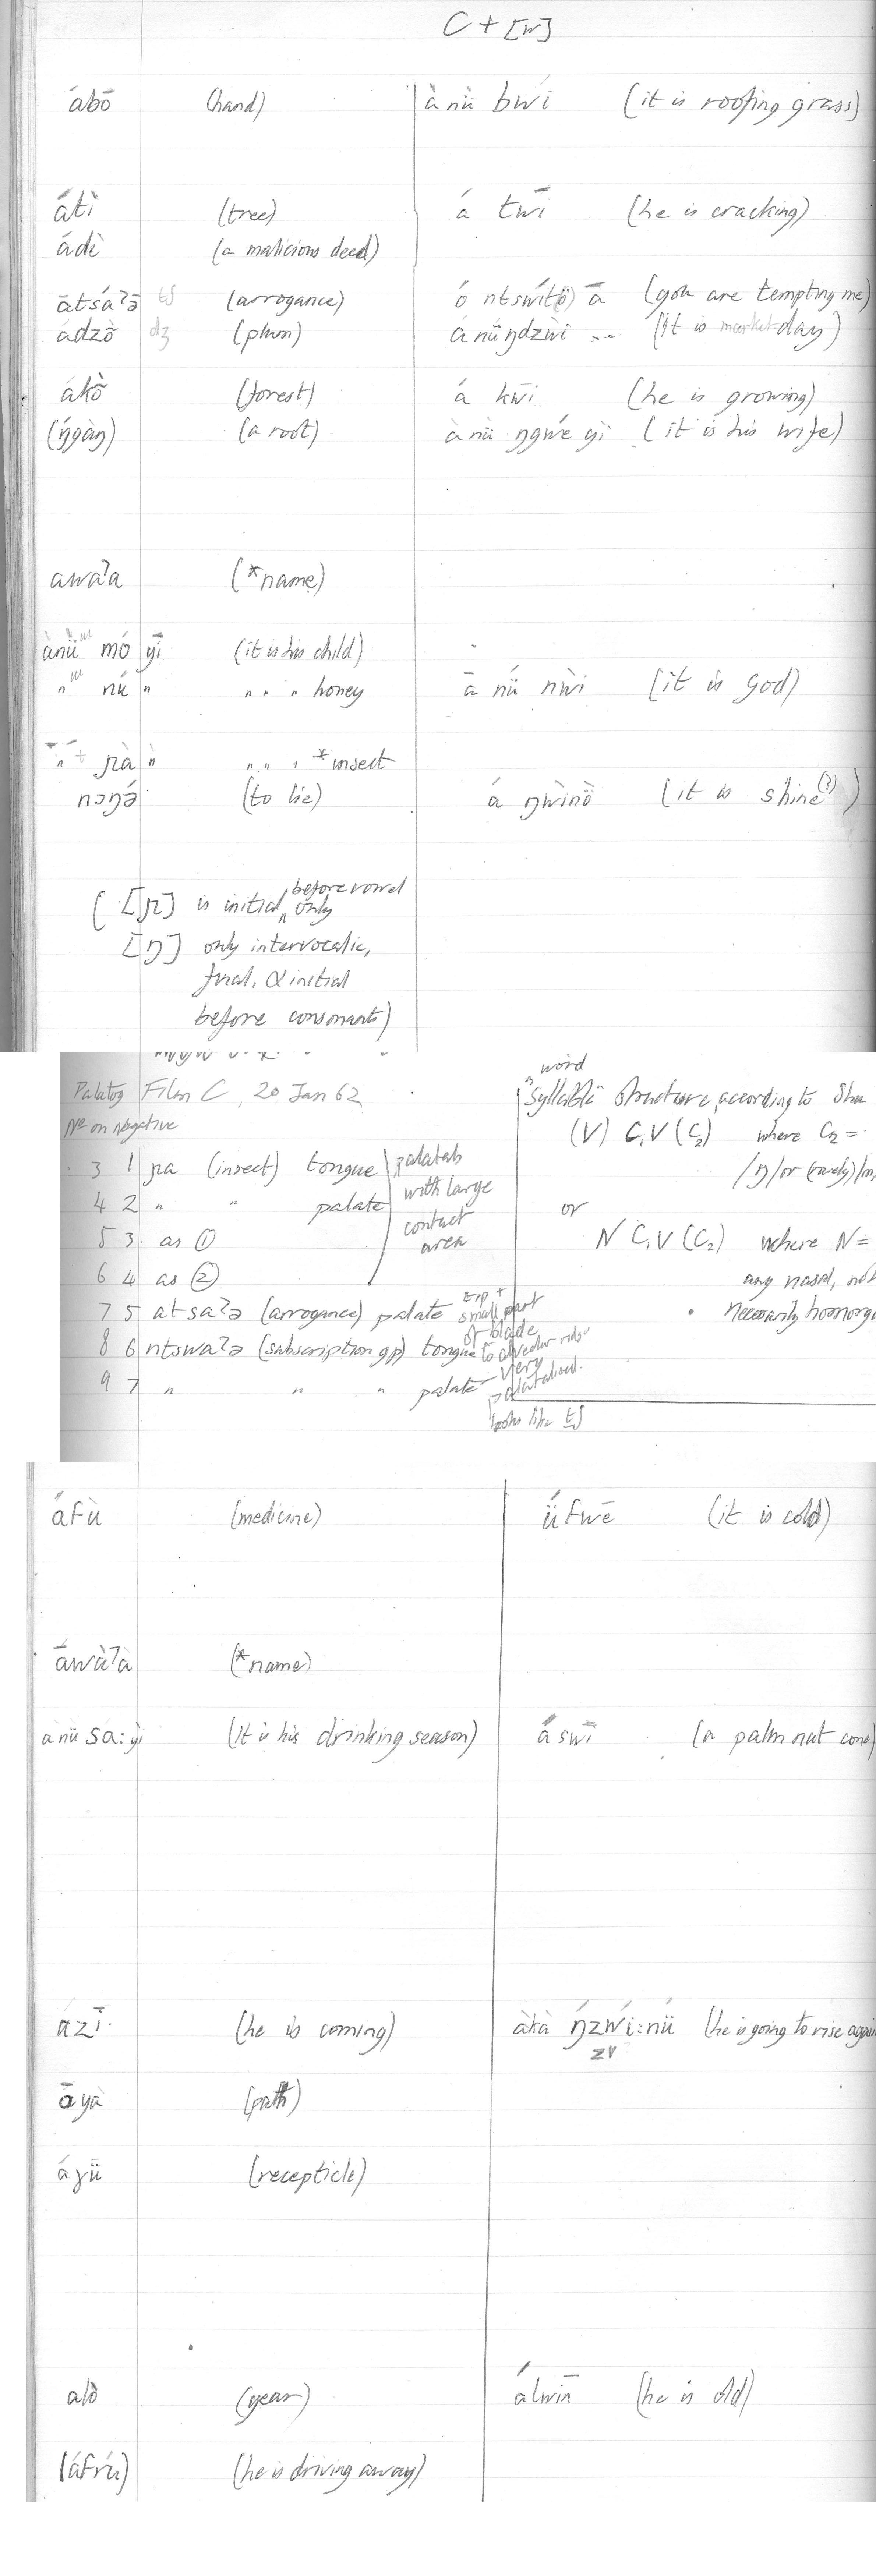 C + [w]
ábō (hand) ànü bwi (it is roofing grass)
átì (tree) á twī (he is cracking)
ádè (a malicious deed)
ātsáʔə̄ tʃ (arrogance) ó ntswítə̄ ā (you are tempting me)
ádzə̀ dʒ (plum) ánüŋdzwì ... (it is market day)
ákə̀ (forest) á kwī (he is growing)
(ŋ́gàŋ) (a root) ànü ŋgwé yì (it is his wife)
awaʔa (*name)
ànü mó yī (it is his child)
" nú " " " " honey ā nǘ nẁi (it is god)
" ɲà " " " " *insect
nɔŋə́ (to lie) á ŋwìnə̀ (it is shine (?))
([ɲ] is initial before vowel only
[ŋ] only intervocalic,
final, & initial
before consonants)
Palatog Film C, 20 Jan 62
No on negative
3 1 ɲa (insect) tongue palatals
4 2 " " palate with large
5 3 as ① contact
6 4 as ② area
7 5 atsaʔə (arrogance) palate tip + small part of blade
8 6 ntswaʔə (subscription gp) tongue to alveolar ridge
9 7 " " " palate – very palatalised.
looks like tʃ
word
Syllable structure, according to
(V) C₁V(C₂) where C₂ =
/ŋ/ or (rarely) /m,
or
N C₁V(C₂) where N =
any nasal, not
necessarily
áfù (medicine) ǘfwē (it is cold)
āwàʔà (*name)
ànü sa:yì (It is his drinking season) áswī (a palm nut cone)
ázī (he is coming) àkà ŋ́zẃi:nǘ (he is going to rise again
zv
āyà (path)
áɣǖ (recepticle)
alə̀ (year) álwīn (he is old)
(áfrú) (he is driving away)